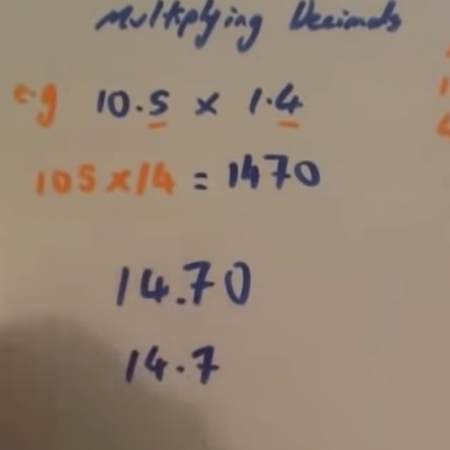 Multiplying Decimals
eg 10.5 x 1.4
105 x 14 = 1470
14.70
14.7